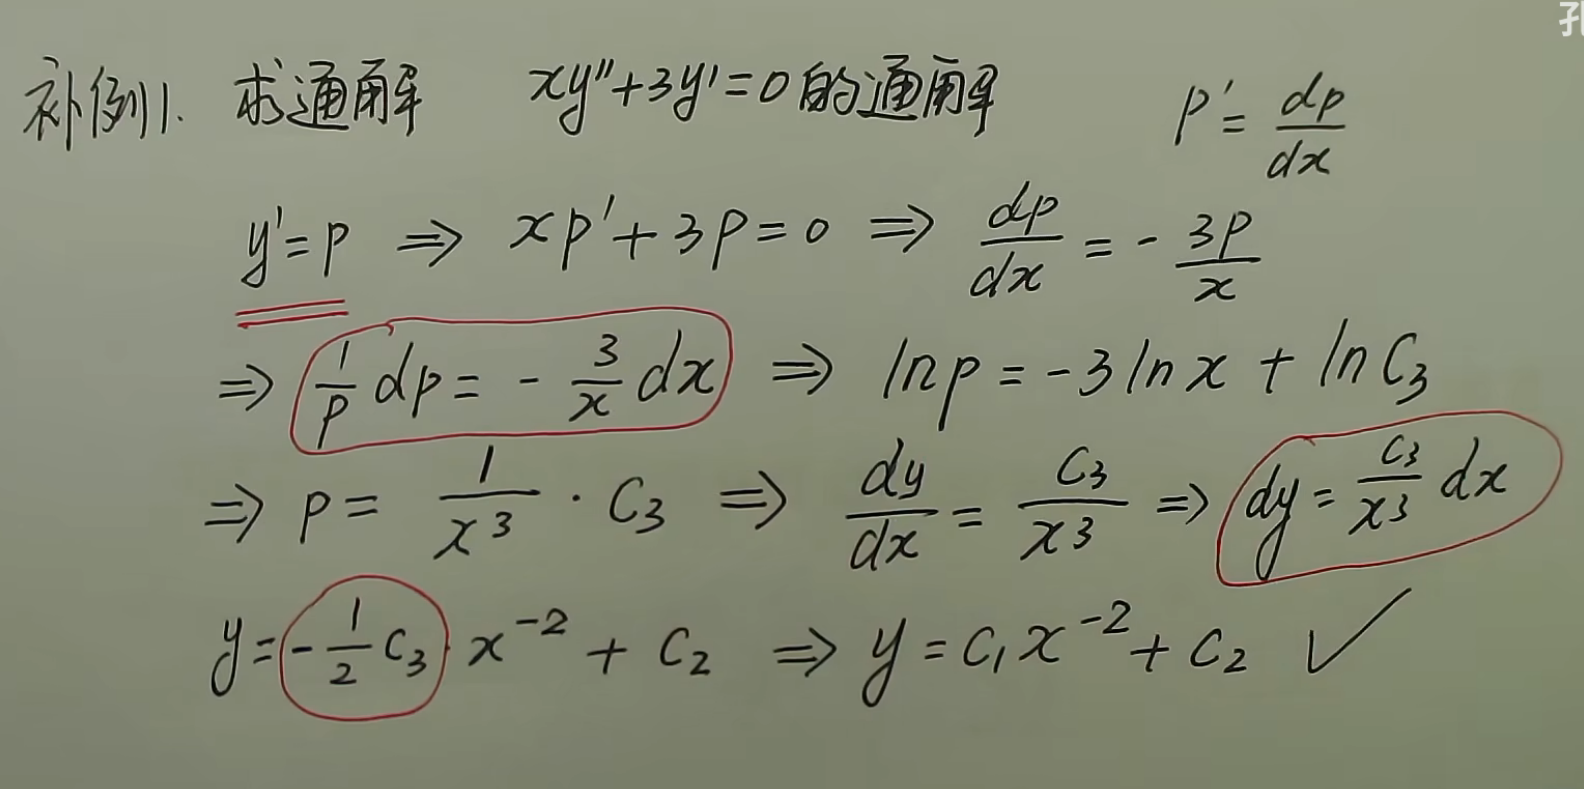 孔
补例1. 求通解 xy''+3y'=0的通解 p'=dp/dx
y'=p ⇒ xp'+3p=0 ⇒ dp/dx=-3p/x
⇒ 1/p dp=-3/x dx ⇒ lnp=-3lnx+lnC₃
⇒ p=1/x³·C₃ ⇒ dy/dx=C₃/x³ ⇒ dy=C₃/x³ dx
y=-1/2 C₃·x⁻²+C₂ ⇒ y=C₁x⁻²+C₂ ✓